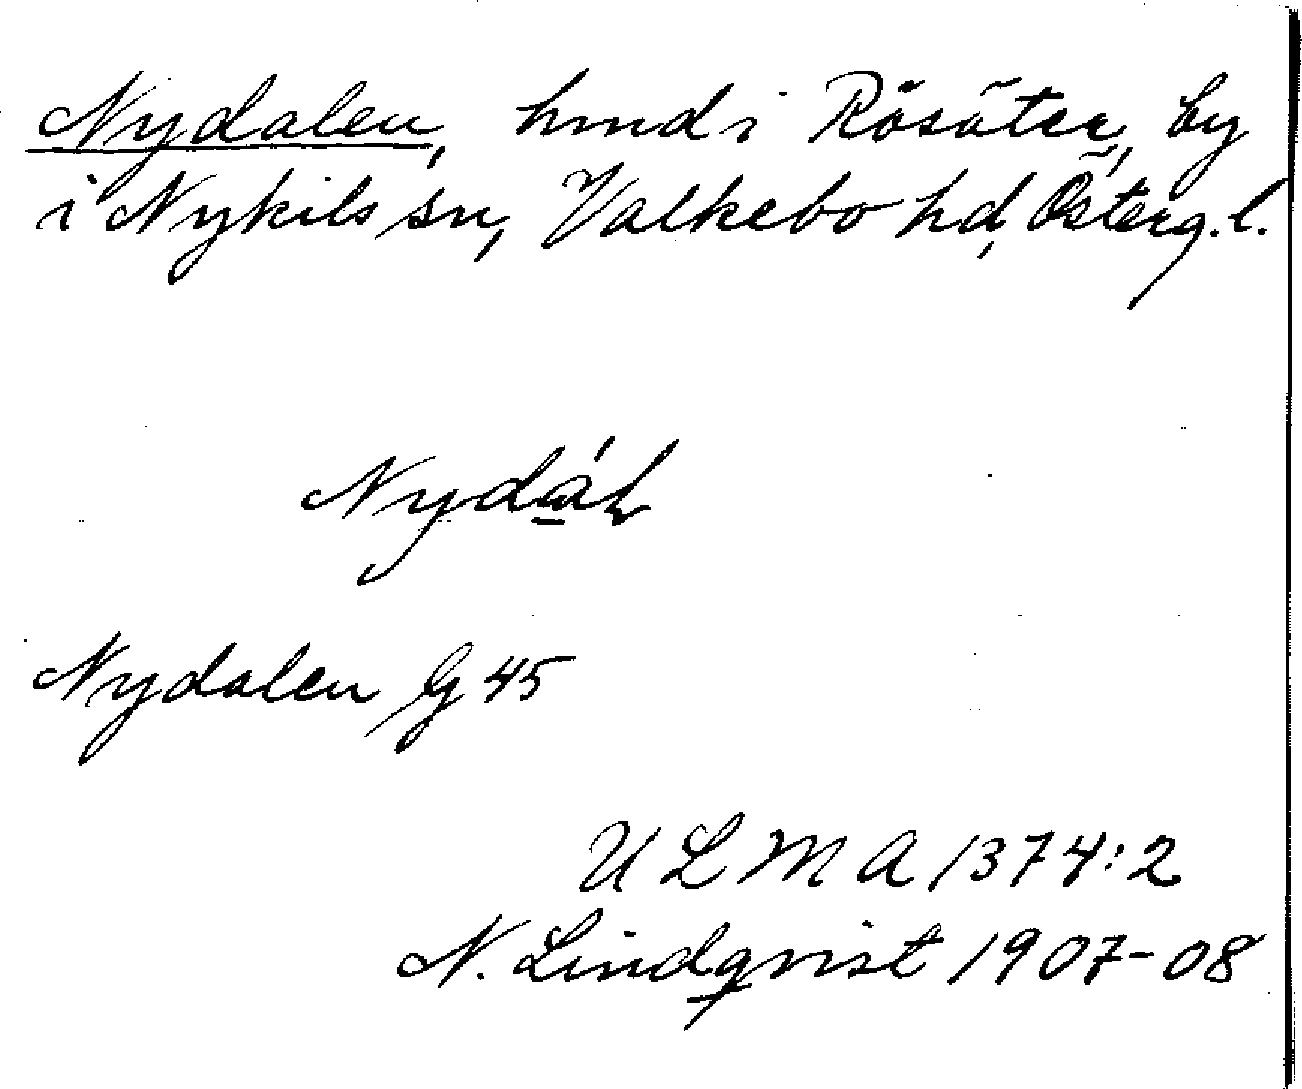 Nydalen, hmd i Rösäter, by
i Nykils sn, Valkebo hd, Österg.l.
Nydalen G 45
U L M A 1374:2
N. Lindqvist 1907-08